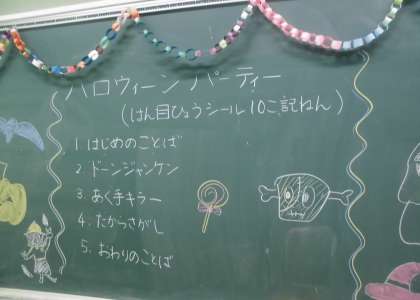 ハロウィーン パーティー
(はん目ひょうシール10こ記ねん)
1. はじめのことば
2. ドーンジャンケン
3. あく手キラー
4. たからさがし
5. おわりのことば